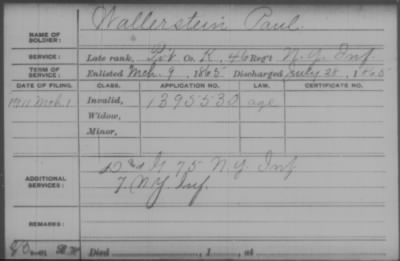 Wallerstein Paul
NAME OF SOLDIER:
SERVICE: Late rank, Pvt Co. K, 46 Reg't N.Y. Inf
TERM OF SERVICE: Enlisted Mch. 9, 1865 Discharged July 28, 1865
DATE OF FILING. CLASS. APPLICATION NO. LAW. CERTIFICATE NO.
1911 Mch. 1 Invalid, 1395530 age
Widow,
Minor,
75 N.Y. Inf
ADDITIONAL SERVICES: 7. N.Y. Inf.
REMARKS:
Died , 1 , at